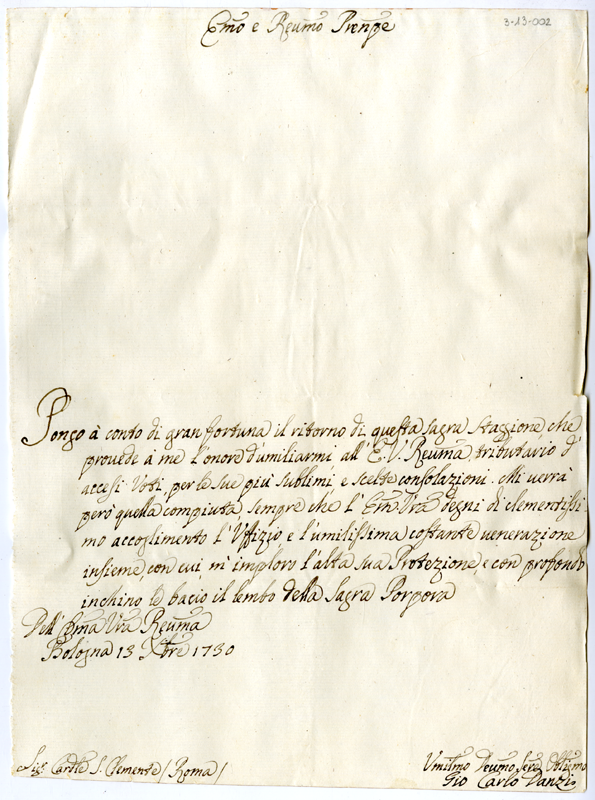 3-13-002
Emo e Reumo Prenpe
Pongo à conto di gran fortuna il ritorno di questa sagra staggione, che
prouede à me l'onore d'umiliarmi all' E. V. Reuma, tributario d'
accesi Voti, per le sue più sublimi e scelte consolazioni. Mi uerrà
però quella compiuta sempre che l' Ema Vra degni di clementissi-
mo accoglimento l'Uffizio e l'umilissima costante uenerazione
insieme, con cui m'imploro l'alta sua Protezione, e con profondo
inchino le bacio il lembo della Sagra Porpora
Dell' Ema Vra Reuma
Bologna 13 Xbre 1730
Sigr Cardle S. Clemente / Roma /
Umilmo Deumo Sere Oblimo
Gio Carlo